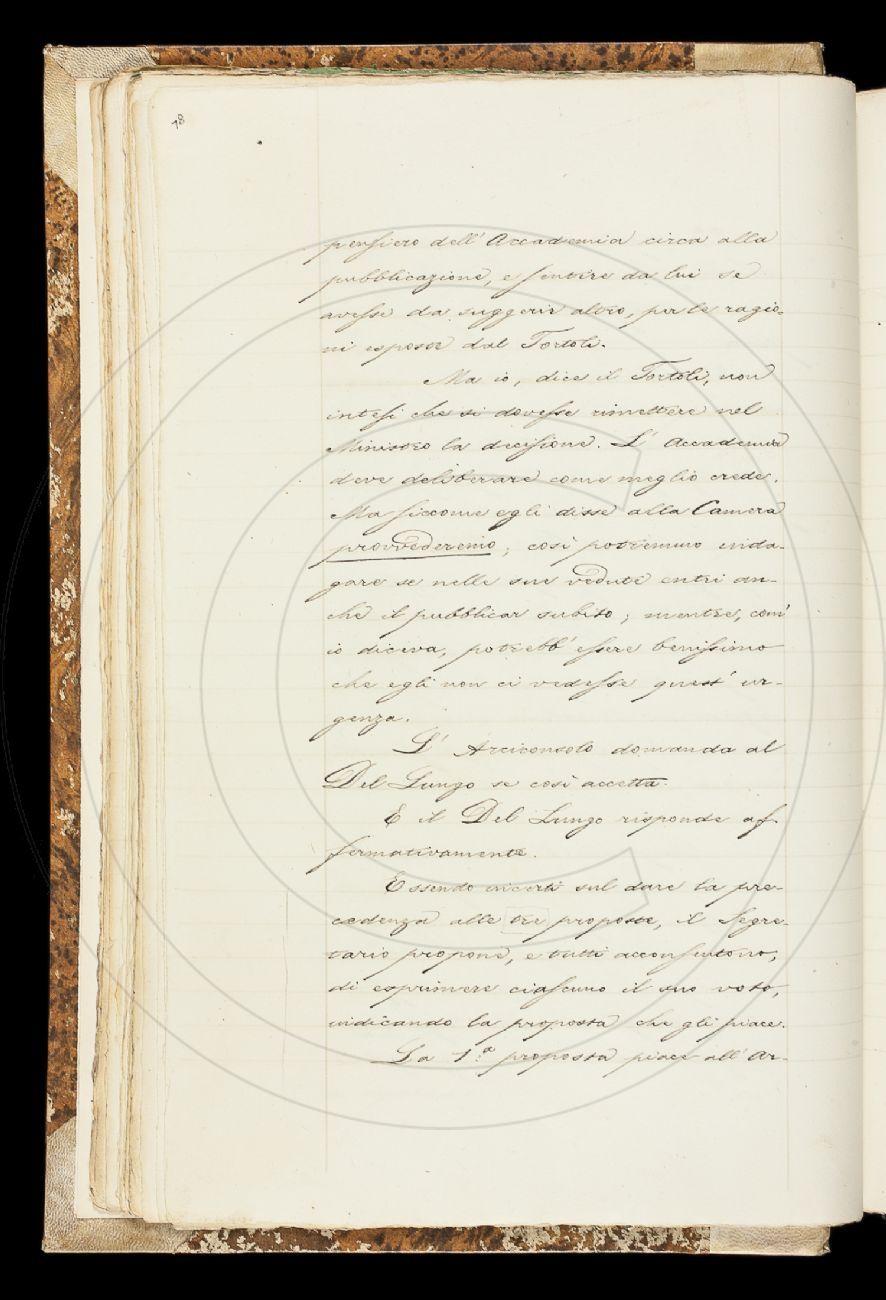 78
pensiero dell' Accademia circa alla
pubblicazione, e sentire da lui se
avesse da suggerir altro, per le ragio-
ni esposte dal Tortoli.
Ma io, dice il Tortoli, non
intesi che si dovesse rimettere nel
Ministro la decisione. L' Accademia
deve deliberare come meglio crede.
Ma siccome egli disse alla Camera
provvederemo; così potremmo inda-
gare se nelle sue vedute entri an-
che il pubblicar subito; mentre, com'
io diceva, potrebb' essere benissimo
che egli non ci vedesse quest' ur-
genza.
L' Arciconsolo domanda al
Del Lungo se così accetta.
E il Del Lungo risponde af-
fermativamente.
Essendo incerti sul dare la pre-
cedenza alle tre proposte, il Segre-
tario propone, e tutti acconsentono,
di esprimere ciascuno il suo voto,
indicando la proposta che gli piace.
La 1.ª proposta piace all' Ar-